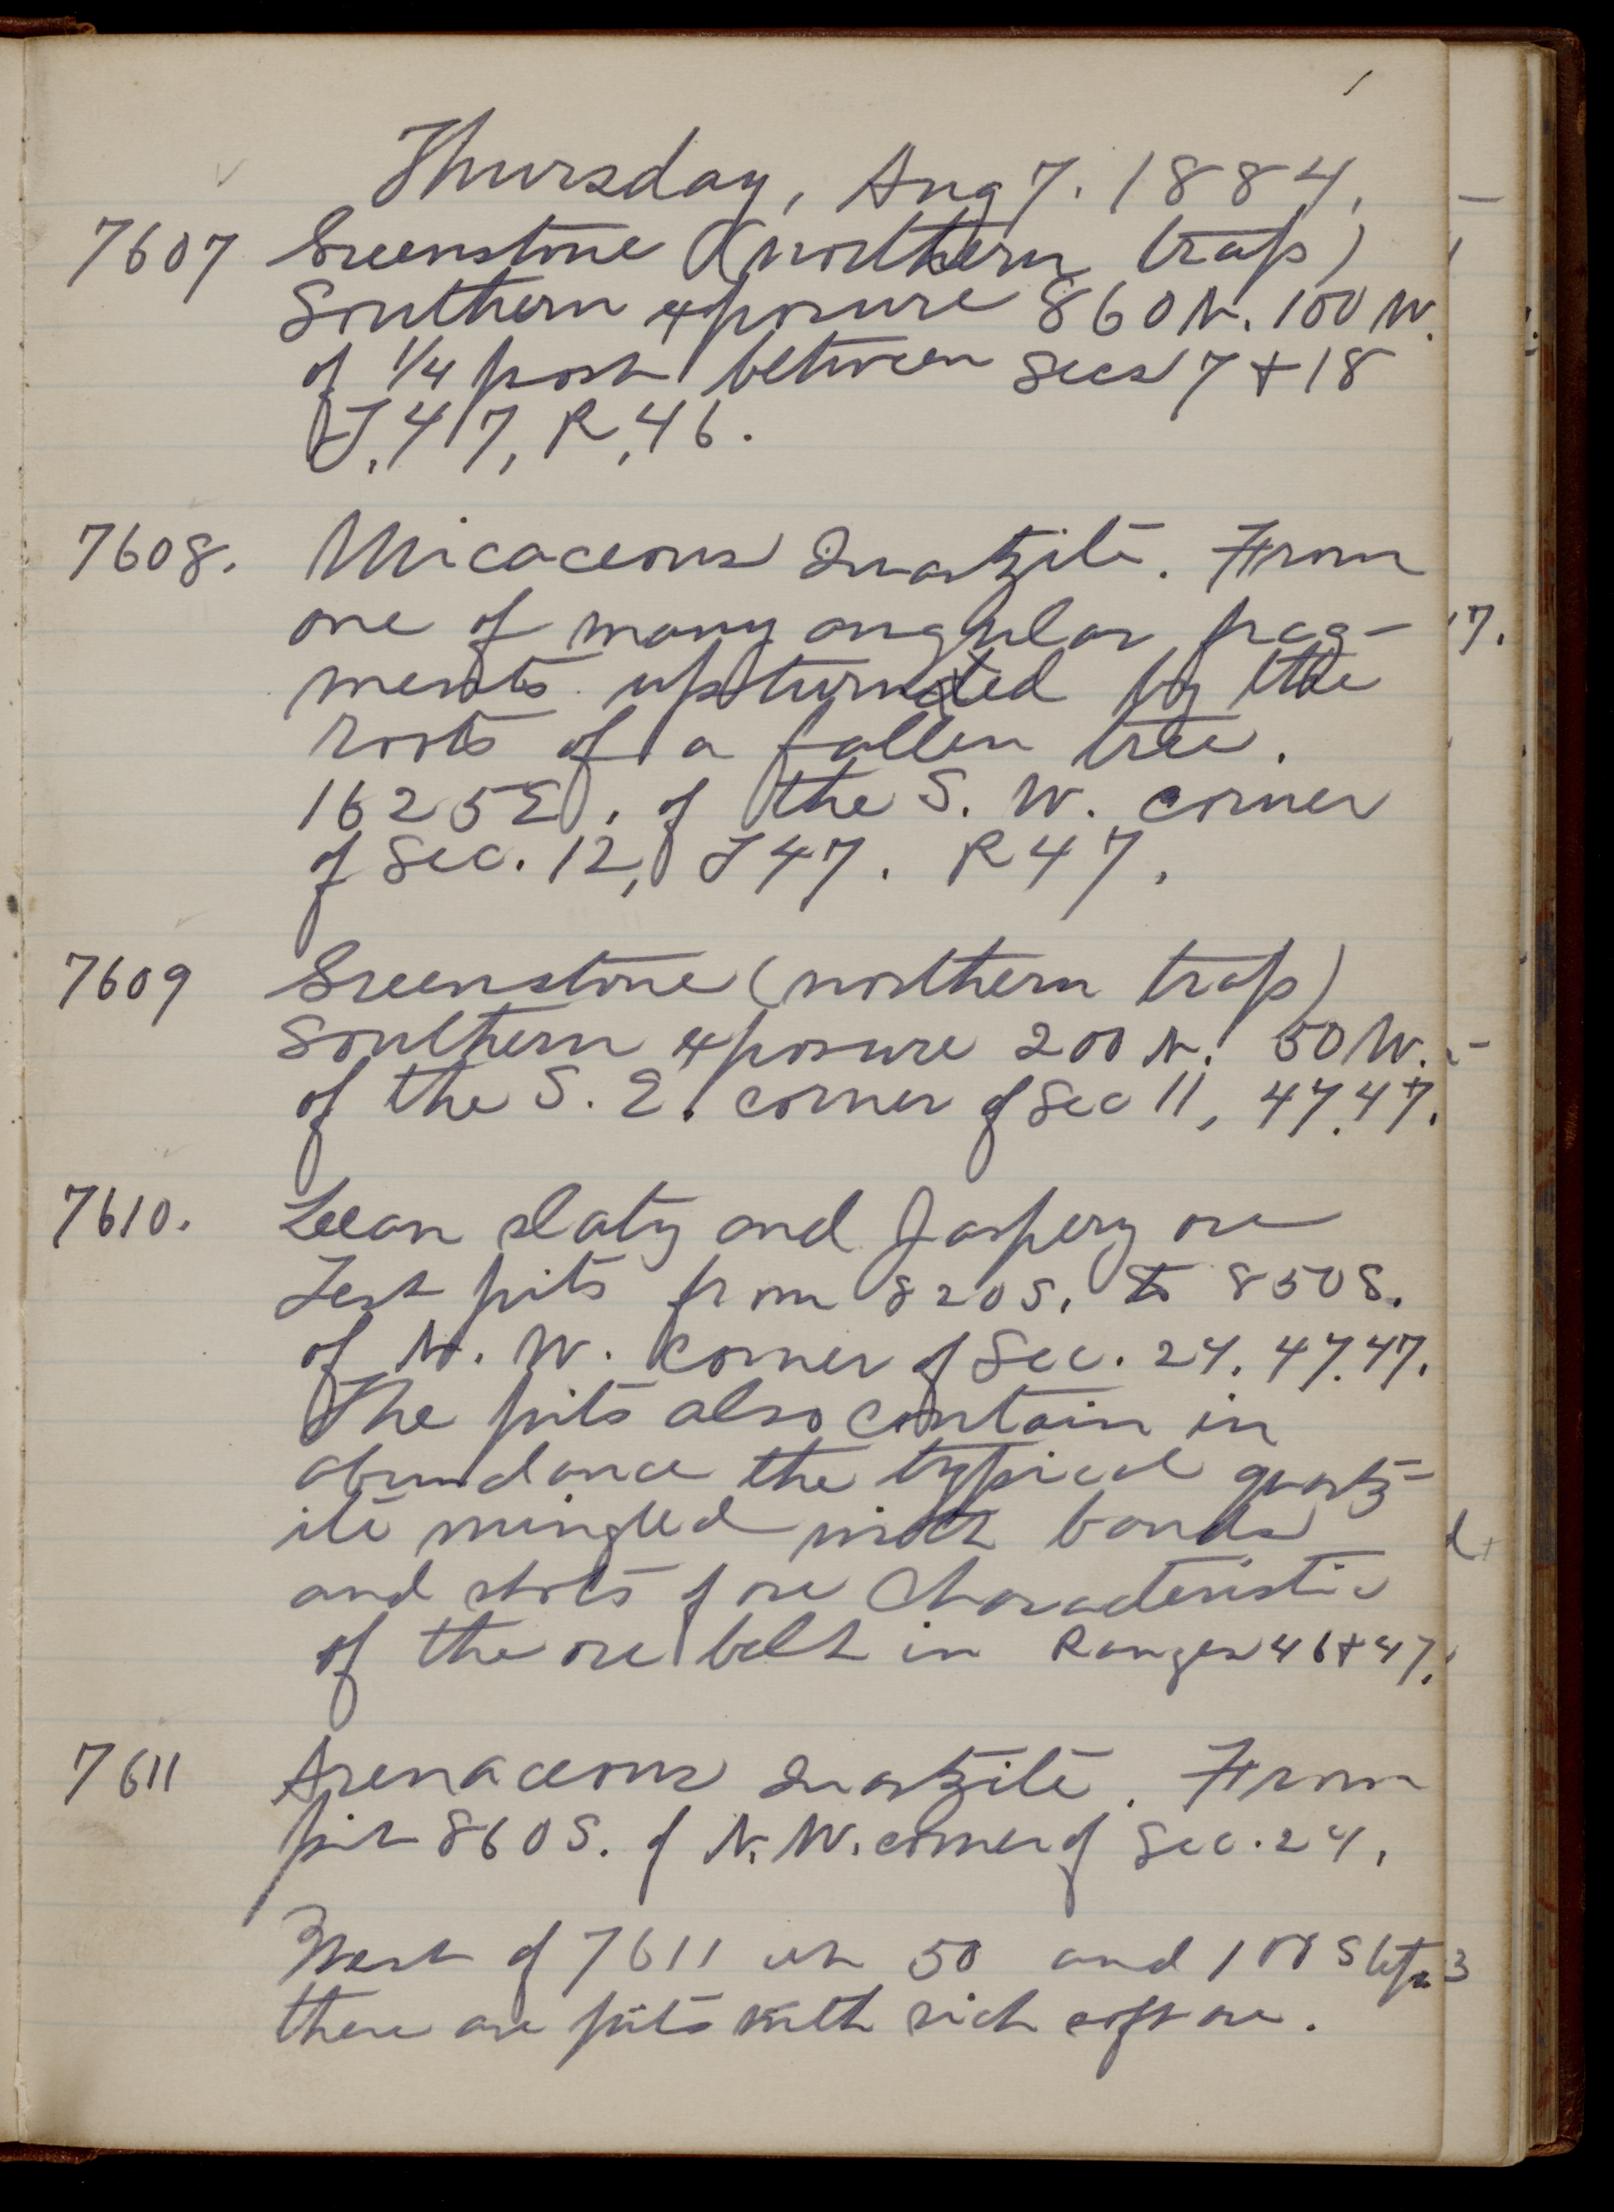 1
Thursday, Aug 7. 1884.
7607 Greenstone (northern trap)
Southern exposure 860 N. 100 W.
of 1/4 post between Secs 7 + 18
T. 47, R. 46.
7608. Micaceous Quartzite. From
one of many angular frag-
ments upturned by the
roots of a fallen tree.
1625 E. of the S. W. corner
of Sec. 12, T 47. R 47.
7609 Greenstone (northern trap)
Southern exposure 200 N. 50 W.
of the S. E. corner of Sec 11, 47.47.
7610. Lean slaty and Jaspery ore
Test pits from 820 S. to 850 S.
of N. W. corner of Sec. 24. 47.47.
The pits also contain in
abundance the typical quartz-
ite mingled with bands
and shots of ore characteristic
of the ore belt in Ranges 46 + 47.
7611 Arenaceous Quartzite. From
pit 860 S. of N. W. corner of Sec. 24.
West of 7611 at 50 and 100 steps
there are pits with rich soft ore.